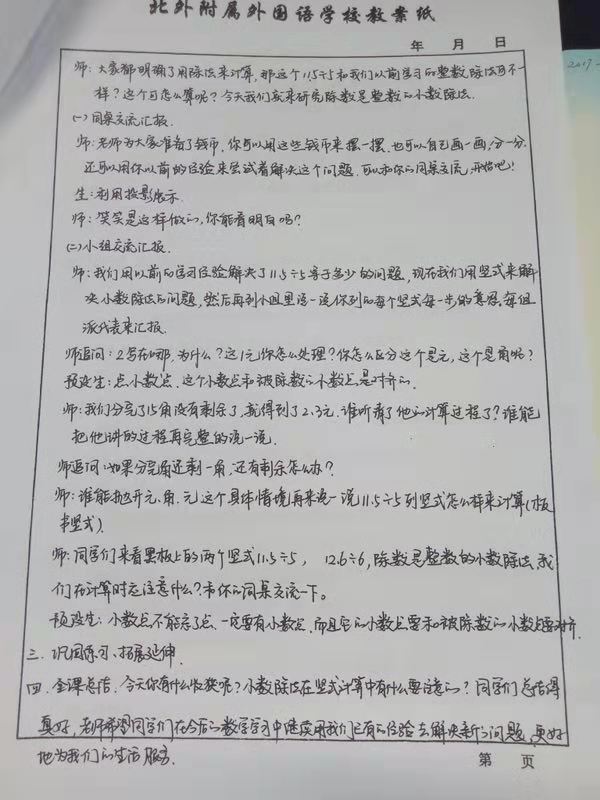 北外附属外国语学校教案纸
年 月 日
2017-
师：大家都明确了用除法来计算，那这个11.5÷5和我们以前学习的整数除法可不一
样？这个可怎么算呢？今天我们就来研究除数是整数的小数除法.
(一)同桌交流汇报.
师：老师为大家准备了钱币，你可以用这些钱币来摆一摆，也可以自己画一画，分一分.
还可以用你以前的经验来尝试着解决这个问题，可以和你的同桌交流，开始吧！
生：利用投影展示
师：笑笑是这样做的，你能看明白吗？
(二)小组交流汇报.
师：我们用以前的学习经验解决了11.5÷5等于多少的问题，现在我们用竖式来解
决小数除法的问题，然后再到小组里说一说你列的每个竖式每一步的意思.每组
派代表来汇报.
师追问：2写在哪，为什么？这1元你怎么处理？你怎么区分这个是元，这个是角呢？
预设生：点小数点，这个小数点和被除数的小数点是对齐的.
师：我们分完了15角没有剩余了，就得到了2.3元.谁听清了他的计算过程了？谁能
把他讲的过程再完整的说一说.
师追问：如果分完角还剩一角，还有剩余怎么办？
师：谁能抛开元、角、元这个具体情境再来说一说11.5÷5列竖式怎么样来计算(板
书竖式).
师：同学们来看黑板上的两个竖式11.5÷5， 12.6÷6，除数是整数的小数除法，我
们在计算时应注意什么？和你的同桌交流一下。
预设生：小数点不能忘了点，一定要有小数点，而且它的小数点要和被除数的小数点要对齐.
三. 巩固练习、拓展延伸.
四. 全课总结. 今天你有什么收获呢？小数除法在竖式计算中有什么要注意的？同学们总结得
真好，老师希望同学们在今后的数学学习中继续用我们已有的经验去解决新的问题，更好
地为我们的生活服务.
第 页